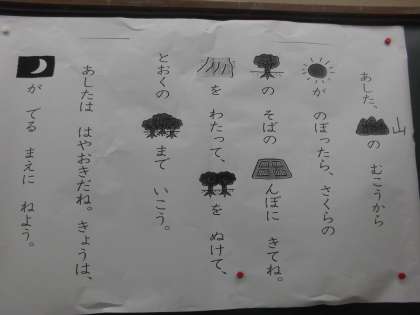 あした、
山
の むこうから
が のぼったら、さくらの
の そばの んぼに きてね。
を わたって、 を ぬけて、
とおくの まで いこう。
あしたは はやおきだね。きょうは、
が でる まえに ねよう。